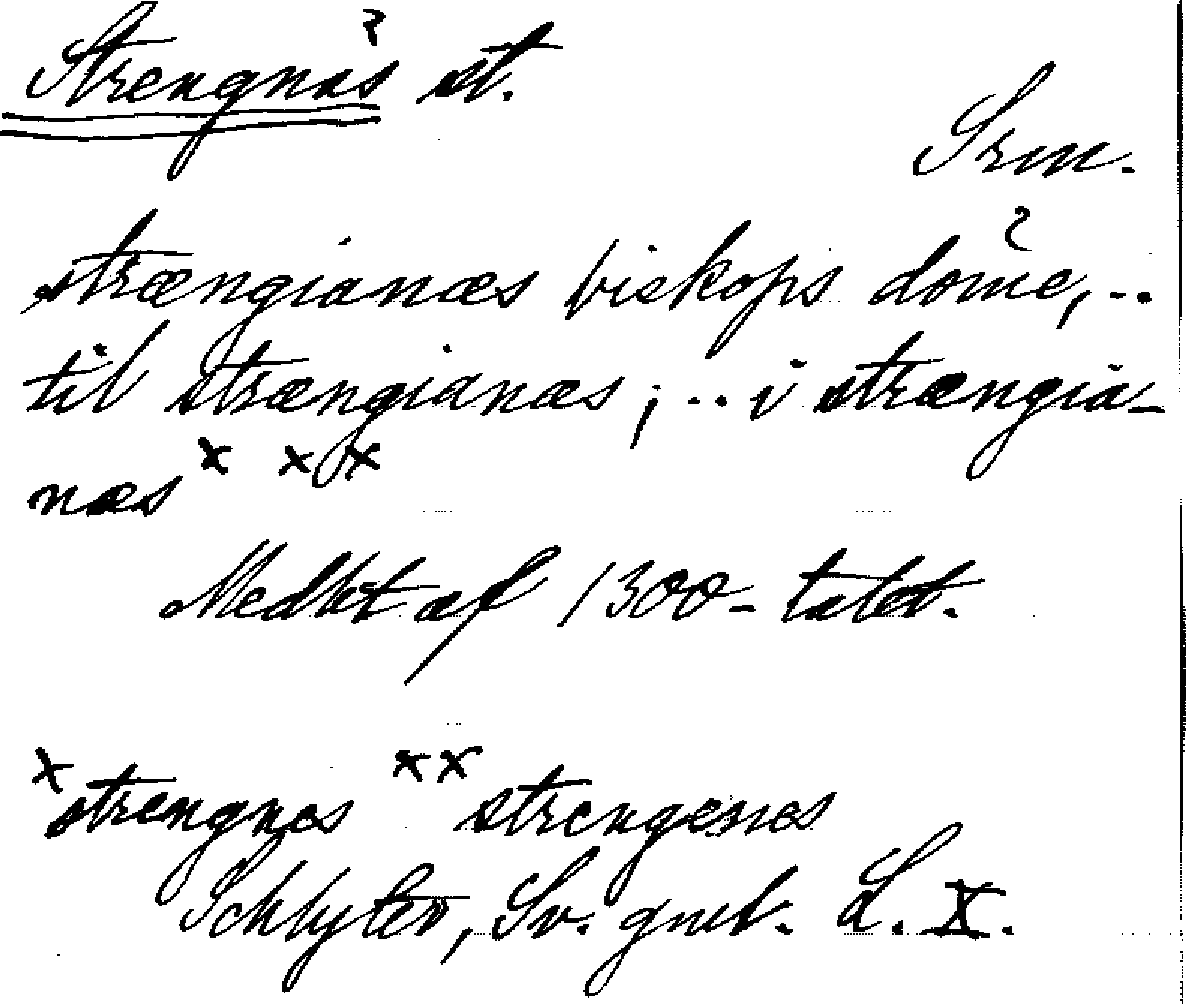 Strengnäs st.
Srm.
strængianæs biskops dome, ..
til strængianæs; .. i strængia-
næs x x x
Medltt af 1300-talet.
x strengnes xx strengenes
Schlyter, Sv. gml. L. X.